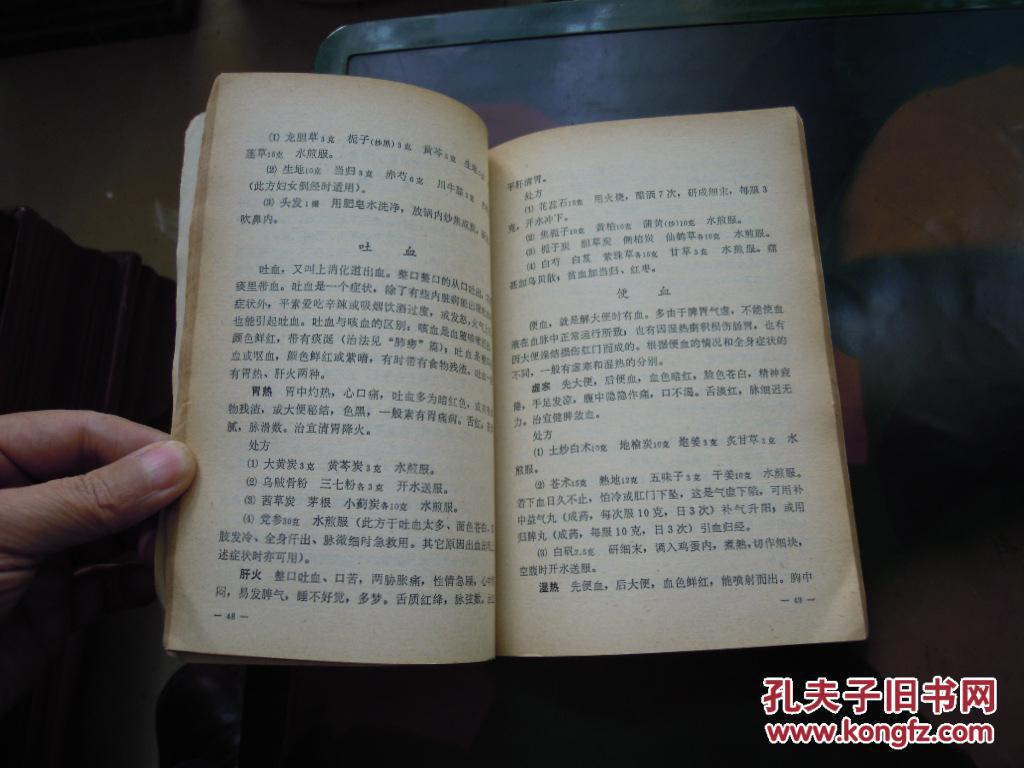 (1) 龙胆草3克 栀子(炒黑)3克 黄芩3克 生地
莲草15克 水煎服。
(2) 生地10克 当归3克 赤芍6克 川牛膝3克
(此方妇女倒经时适用)。
(3) 头发1撮 用肥皂水洗净，放锅内炒焦成炭，研
吹鼻内。
吐血
吐血，又叫上消化道出血。整口整口的从口吐出，
痰里带血。吐血是一个症状，除了有些内脏病能出现
症状外，平素爱吃辛辣或吸烟饮酒过度，或发怒，火气上
也能引起吐血。吐血与咳血的区别：咳血是血随咳嗽
颜色鲜红，带有痰涎（治法见“肺痨”篇）；吐血是
血或呕血，颜色鲜红或紫暗，有时带有食物残渣。吐血一
有胃热、肝火两种。
胃热 胃中灼热，心口痛，吐血多为暗红色，或
物残渣，或大便秘结，色黑，一般素有胃痛病。舌红，苔
腻，脉滑数。治宜清胃降火。
处方
(1) 大黄炭3克 黄芩炭3克 水煎服。
(2) 乌贼骨粉 三七粉各3克 开水送服。
(3) 茜草炭 茅根 小蓟炭各10克 水煎服。
(4) 党参30克 水煎服（此方于吐血太多、面色苍白、
肢发冷、全身汗出、脉微细时急救用。其它原因出血
述症状时亦可用）。
肝火 整口吐血、口苦，两胁胀痛，性情急躁，心中
闷，易发脾气，睡不好觉，多梦。舌质红绛，脉弦数。
— 48 —
平肝清胃。
处方
(1) 花蕊石15克 用火烧，醋洒7次，研成细末，每服3
克，开水冲下。
(2) 焦栀子10克 黄柏10克 蒲黄(炒)10克 水煎服。
(3) 栀子炭 胆草炭 侧柏炭 仙鹤草各10克 水煎服。
(4) 白芍 白芨 紫珠草各15克 甘草3克 水煎服。痛
甚加乌贝散，贫血加当归、红枣。
便血
便血，就是解大便时有血。多由于脾胃气虚，不能使血
液在血脉中正常运行所致；也有因湿热痢积损伤肠胃，也有
因大便燥结损伤肛门而成的。根据便血的情况和全身症状的
不同，一般有虚寒和湿热的分别。
虚寒 先大便，后便血，血色暗红，脸色苍白，精神疲
倦，手足发凉，腹中隐隐作痛，口不渴。舌淡红，脉细迟无
力。治宜健脾敛血。
处方
(1) 土炒白术10克 地榆炭10克 炮姜3克 炙甘草3克 水
煎服。
(2) 苍术15克 熟地12克 五味子3克 干姜10克 水煎服。
若下血日久不止，怕冷或肛门下坠，这是气虚下陷，可用补
中益气丸（成药，每次服10克，日3次）补气升阳；或用
归脾丸（成药，每服10克，日3次）引血归经。
(3) 白矾2.5克 研细末，调入鸡蛋内，煮熟，切作细块，
空腹时开水送服。
湿热 先便血，后大便，血色鲜红，能喷射而出。胸中
— 49 —
孔夫子旧书网
www.kongfz.com